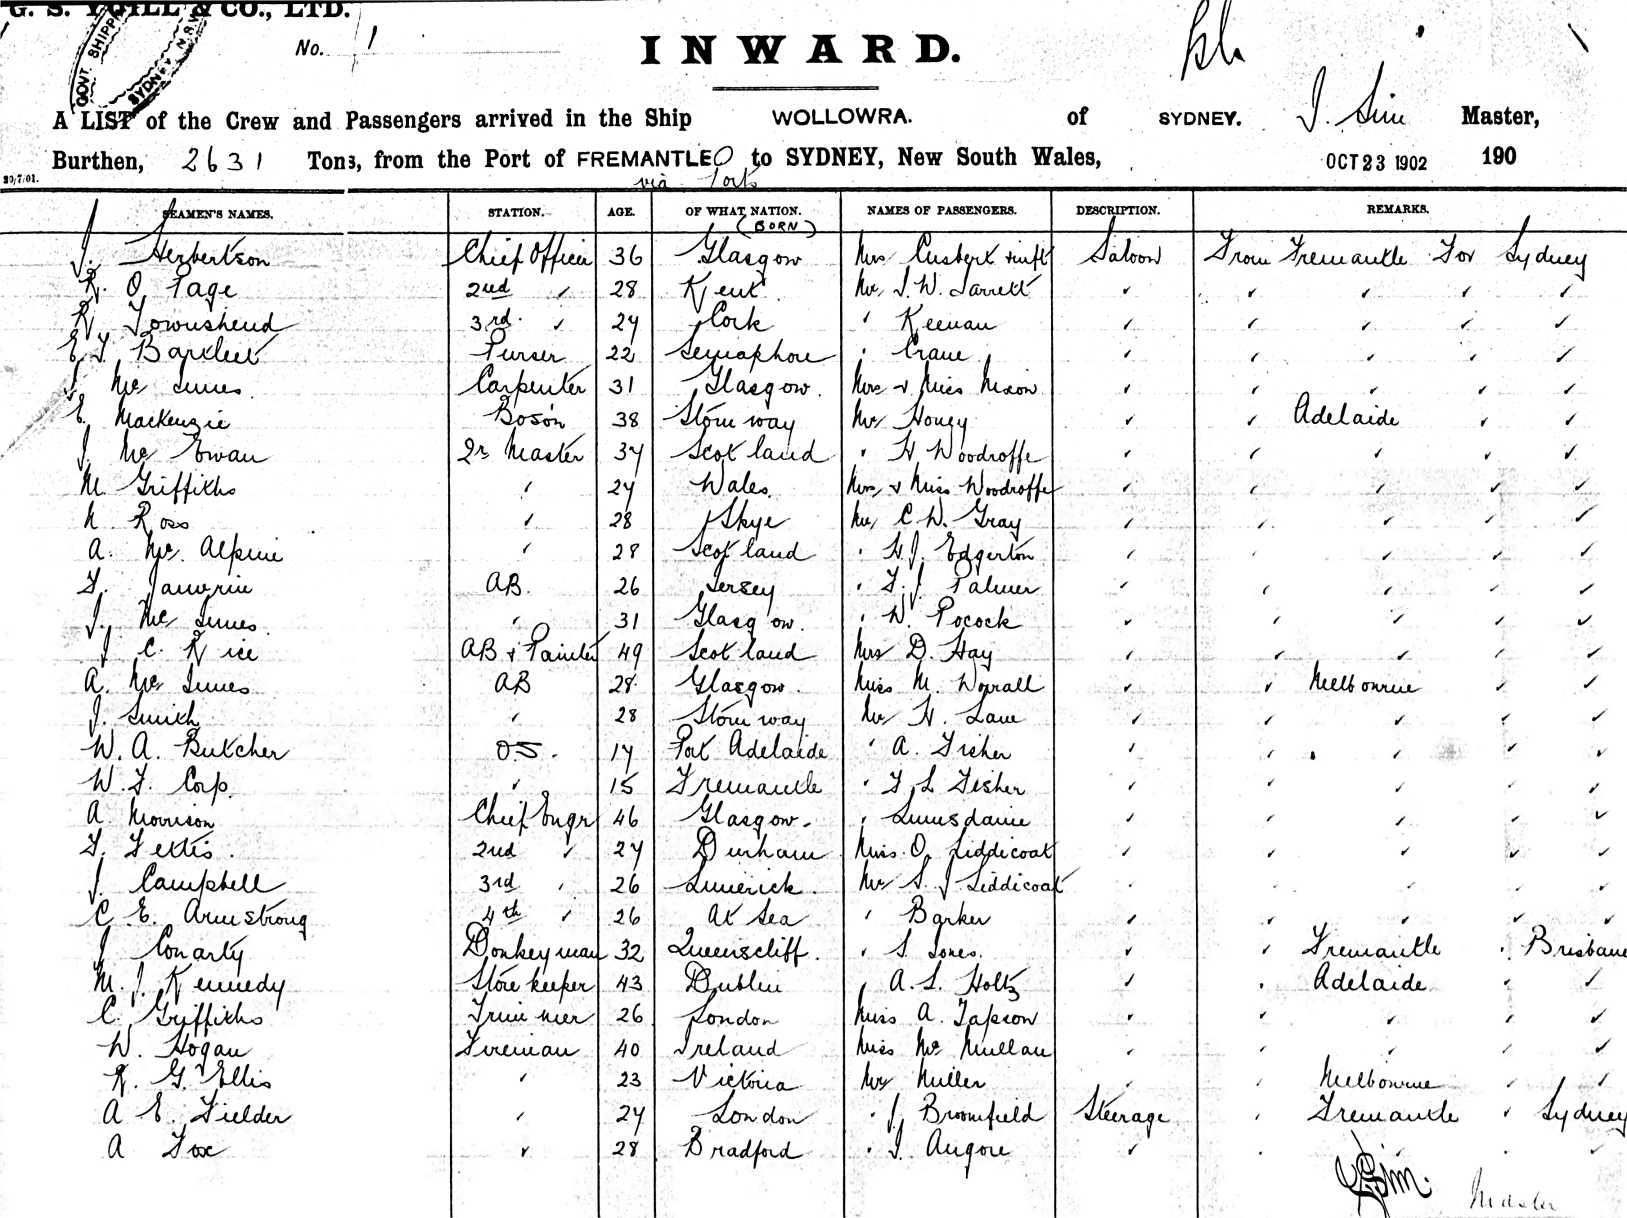 G. S. YUILL & CO., LTD.
GOVT SHIPP
SYDNEY N.S.W.
No. 1
INWARD.
A LIST of the Crew and Passengers arrived in the Ship WOLLOWRA. of SYDNEY. J. Sim Master,
Burthen, 2631 Tons, from the Port of FREMANTLE to SYDNEY, New South Wales, OCT 23 1902 190
via Ports
30/7/01.
SEAMEN'S NAMES. STATION. AGE. OF WHAT NATION. NAMES OF PASSENGERS. DESCRIPTION. REMARKS.
(BORN)
J. Herbertson Chief Officer 36 Glasgow Mrs Cusbert Saloon From Fremantle For Sydney
R. O Page 2nd " 28 Kent Mr J. W. Jarrett " " " " "
R. Townshend 3rd " 27 Cork " Keenan " " " " "
E J. Bartleet Purser 22 Semaphore " Crane " " " " "
J. McInnes Carpenter 31 Glasgow. Mrs & Miss Nixon " " " " "
E MacKenzie Bos'n 38 Stornway Mr Honey " " Adelaide " "
J. McEwan Qr Master 37 Scotland " H Woodroffe " " " " "
M. Griffiths " 27 Wales. Mrs & Miss Woodroffe " " " " "
N. Ross " 28 Skye Mr C W. Gray " " " " "
A. McAlpine " 28 Scotland " H. J. Edgerton " " " " "
F. Janvrin AB. 26 Jersey " F. J. Palmer " " " " "
J. McInnes. " 31 Glasgow. " W. Pocock " " " " "
J C. Rice AB & Painter 49 Scotland Mrs D. Hay " " " " "
A. McInnes AB 28 Glasgow. Miss M. Worrall " " Melbourne " "
J. Smith " 28 Stornway Mr H. Lane " " " " "
W. A. Butcher OS. 17 Port Adelaide " A. Fisher " " " " "
W. F. Corp. " 15 Fremantle " F L Fisher " " " " "
A Morrison Chief Engr 46 Glasgow. " Lumsdaine " " " " "
F. Fettis. 2nd " 27 Durham Miss O. Liddicoat " " " " "
J. Campbell 3rd " 26 Limerick. Mr S. J. Liddicoat " " " " "
C E. Armstrong 4th " 26 At Sea " Barker " " " " "
J Conarty Donkeyman 32 Queenscliff. " S. Jones. " " Fremantle " Brisbane
M. J. Kennedy Storekeeper 43 Dublin " A. S. Holtz " " Adelaide " "
C. Griffiths Trimmer 26 London Miss A. Tapson " " " " "
W. Hogan Fireman 40 Ireland Miss McMullan " " " " "
R. G. Ellis " 23 Victoria Mr Miller " " Melbourne " "
A E. Fielder " 27 London " J. Broomfield Steerage " Fremantle " Sydney
A Fox " 28 Bradford " J. Angore " " " " "
J Sim. Master